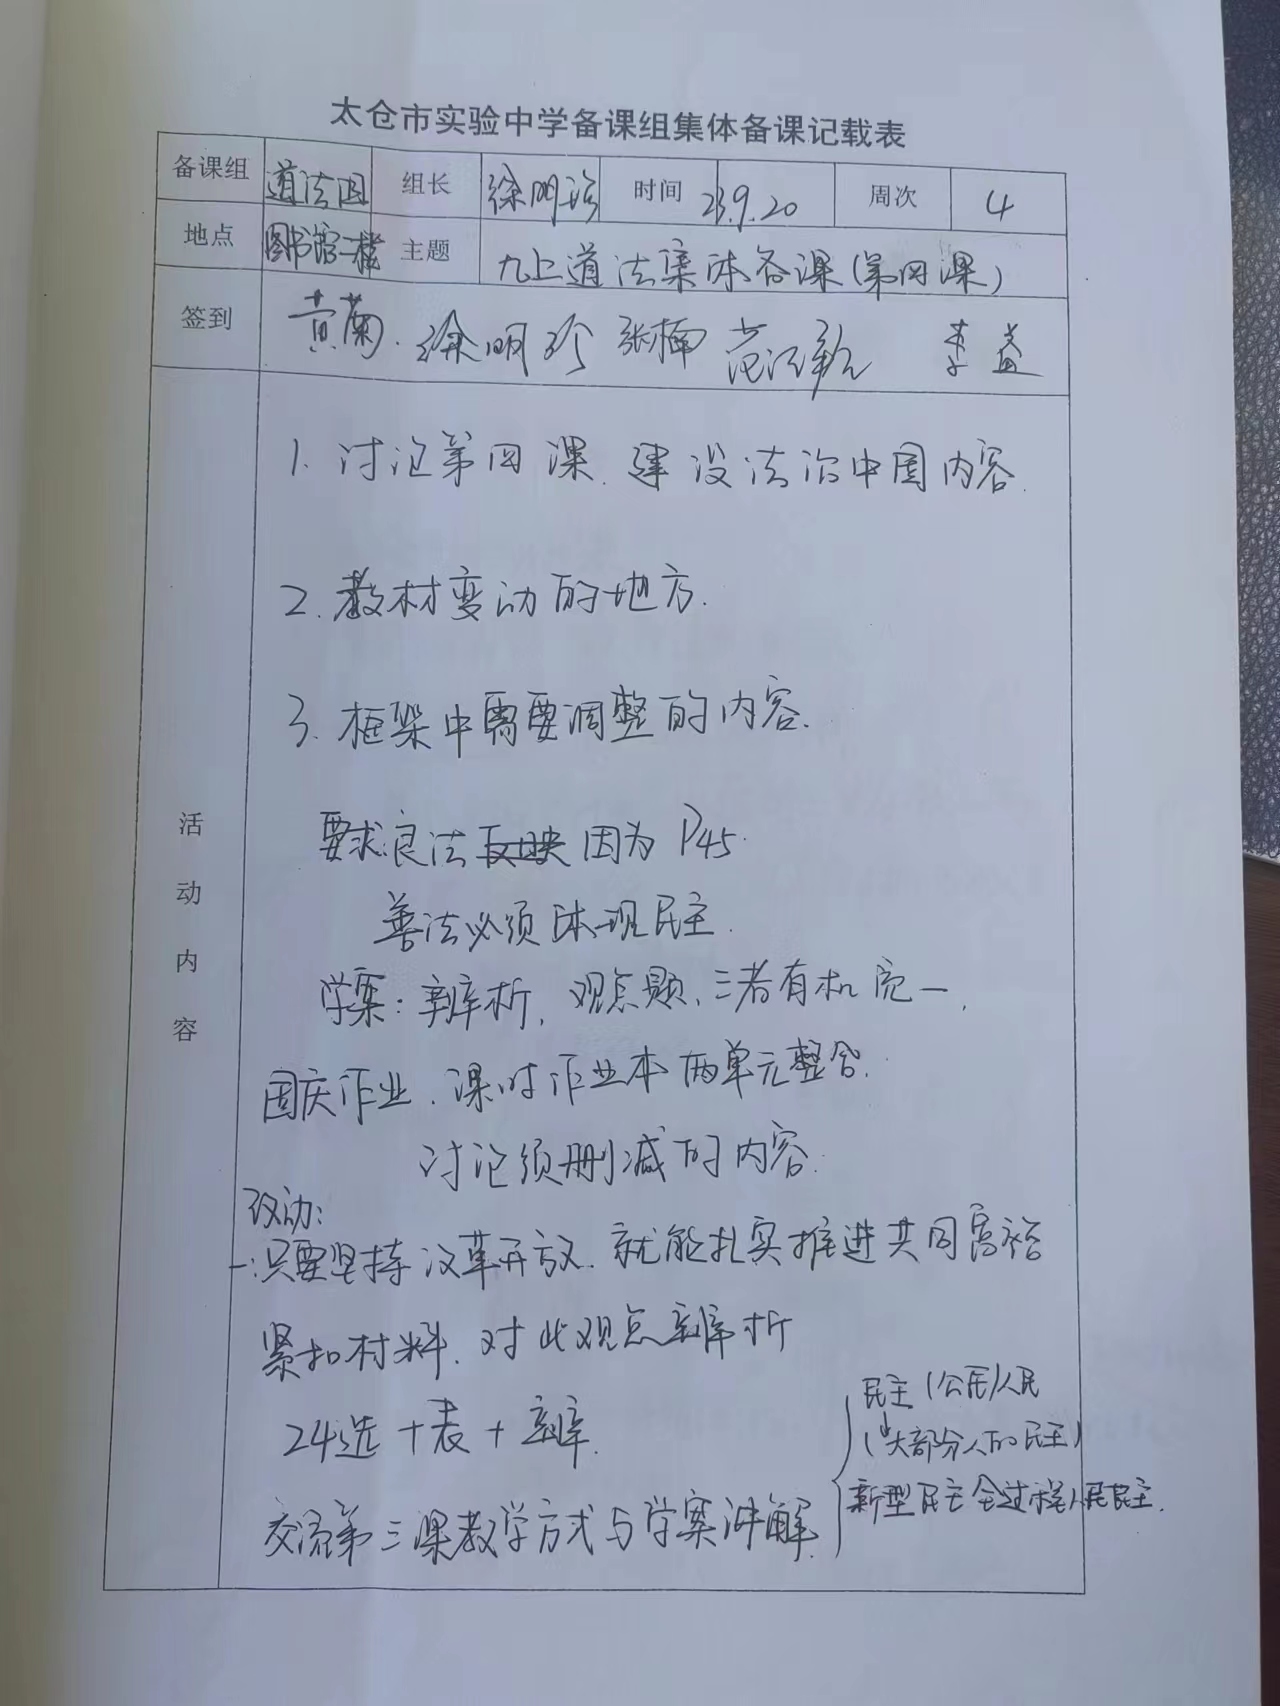 太仓市实验中学备课组集体备课记载表
备课组 道法 组长 徐明珍 时间 23.9.20 周次 4
地点 图书馆一楼 主题 九上道法集体备课(第四课)
签到 黄菊 徐明珍 张楠 李益
活动内容
1. 讨论第四课 建设法治中国内容.
2. 教材变动的地方.
3. 框架中需要调整的内容.
要求良法反映因为P45.
善法必须体现民主.
学案: 辨析, 观点题、三者有机统一,
国庆作业. 课时作业本两单元整合.
讨论须删减的内容.
改动:
一: 只要坚持改革开放. 就能扎实推进共同富裕
紧扣材料. 对此观点辨析
24选十表+辨.
交流第三课教学方式与学案讲解.
民主(公民)人民
(大部分人的民主)
新型民主 全过程人民民主.